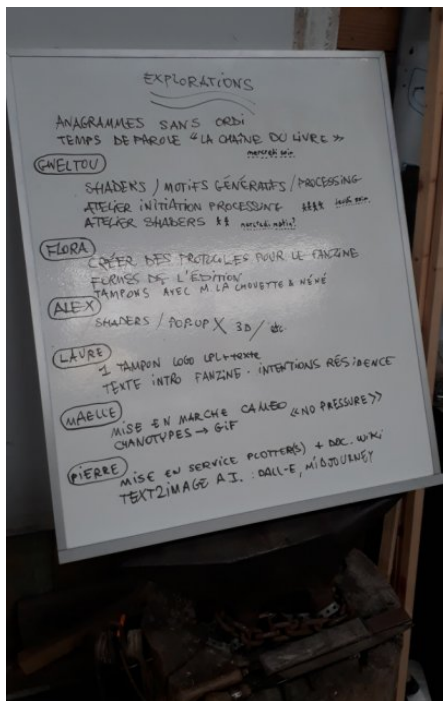 EXPLORATIONS
ANAGRAMMES SANS ORDI
TEMPS DE PAROLE "LA CHAÎNE DU LIVRE"
mercredi soir
GWELTOU
SHADERS / MOTIFS GÉNÉRATIFS / PROCESSING
ATELIER INITIATION PROCESSING **** jeudi soir
ATELIER SHADERS ** mercredi matin?
FLORA
CRÉER DES PROTOCOLES POUR LE FANZINE
FORMES DE L'ÉDITION
TAMPONS AVEC M LA CHOUETTE & NÉNÉ
ALEX
SHADERS / POP-UP X 3D / etc.
LAURE
1 TAMPON LOGO LPL + texte
TEXTE INTRO FANZINE - INTENTIONS RÉSIDENCE
MAELLE
MISE EN MARCHE CAMEO «NO PRESSURE»
CYANOTYPES → GIF
PIERRE
MISE EN SERVICE PLOTTER(S) + DOC. WIKI
TEXT2IMAGE A.I. : DALL-E, MIDJOURNEY